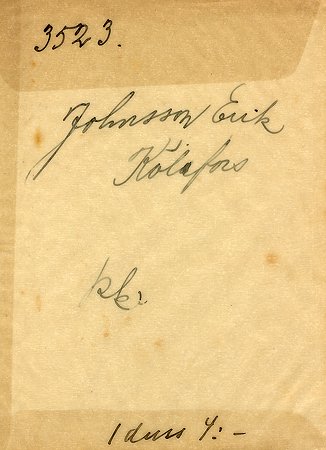 3523.
Johnsson Erik
Kölafors
kk.
1 duss 4:-